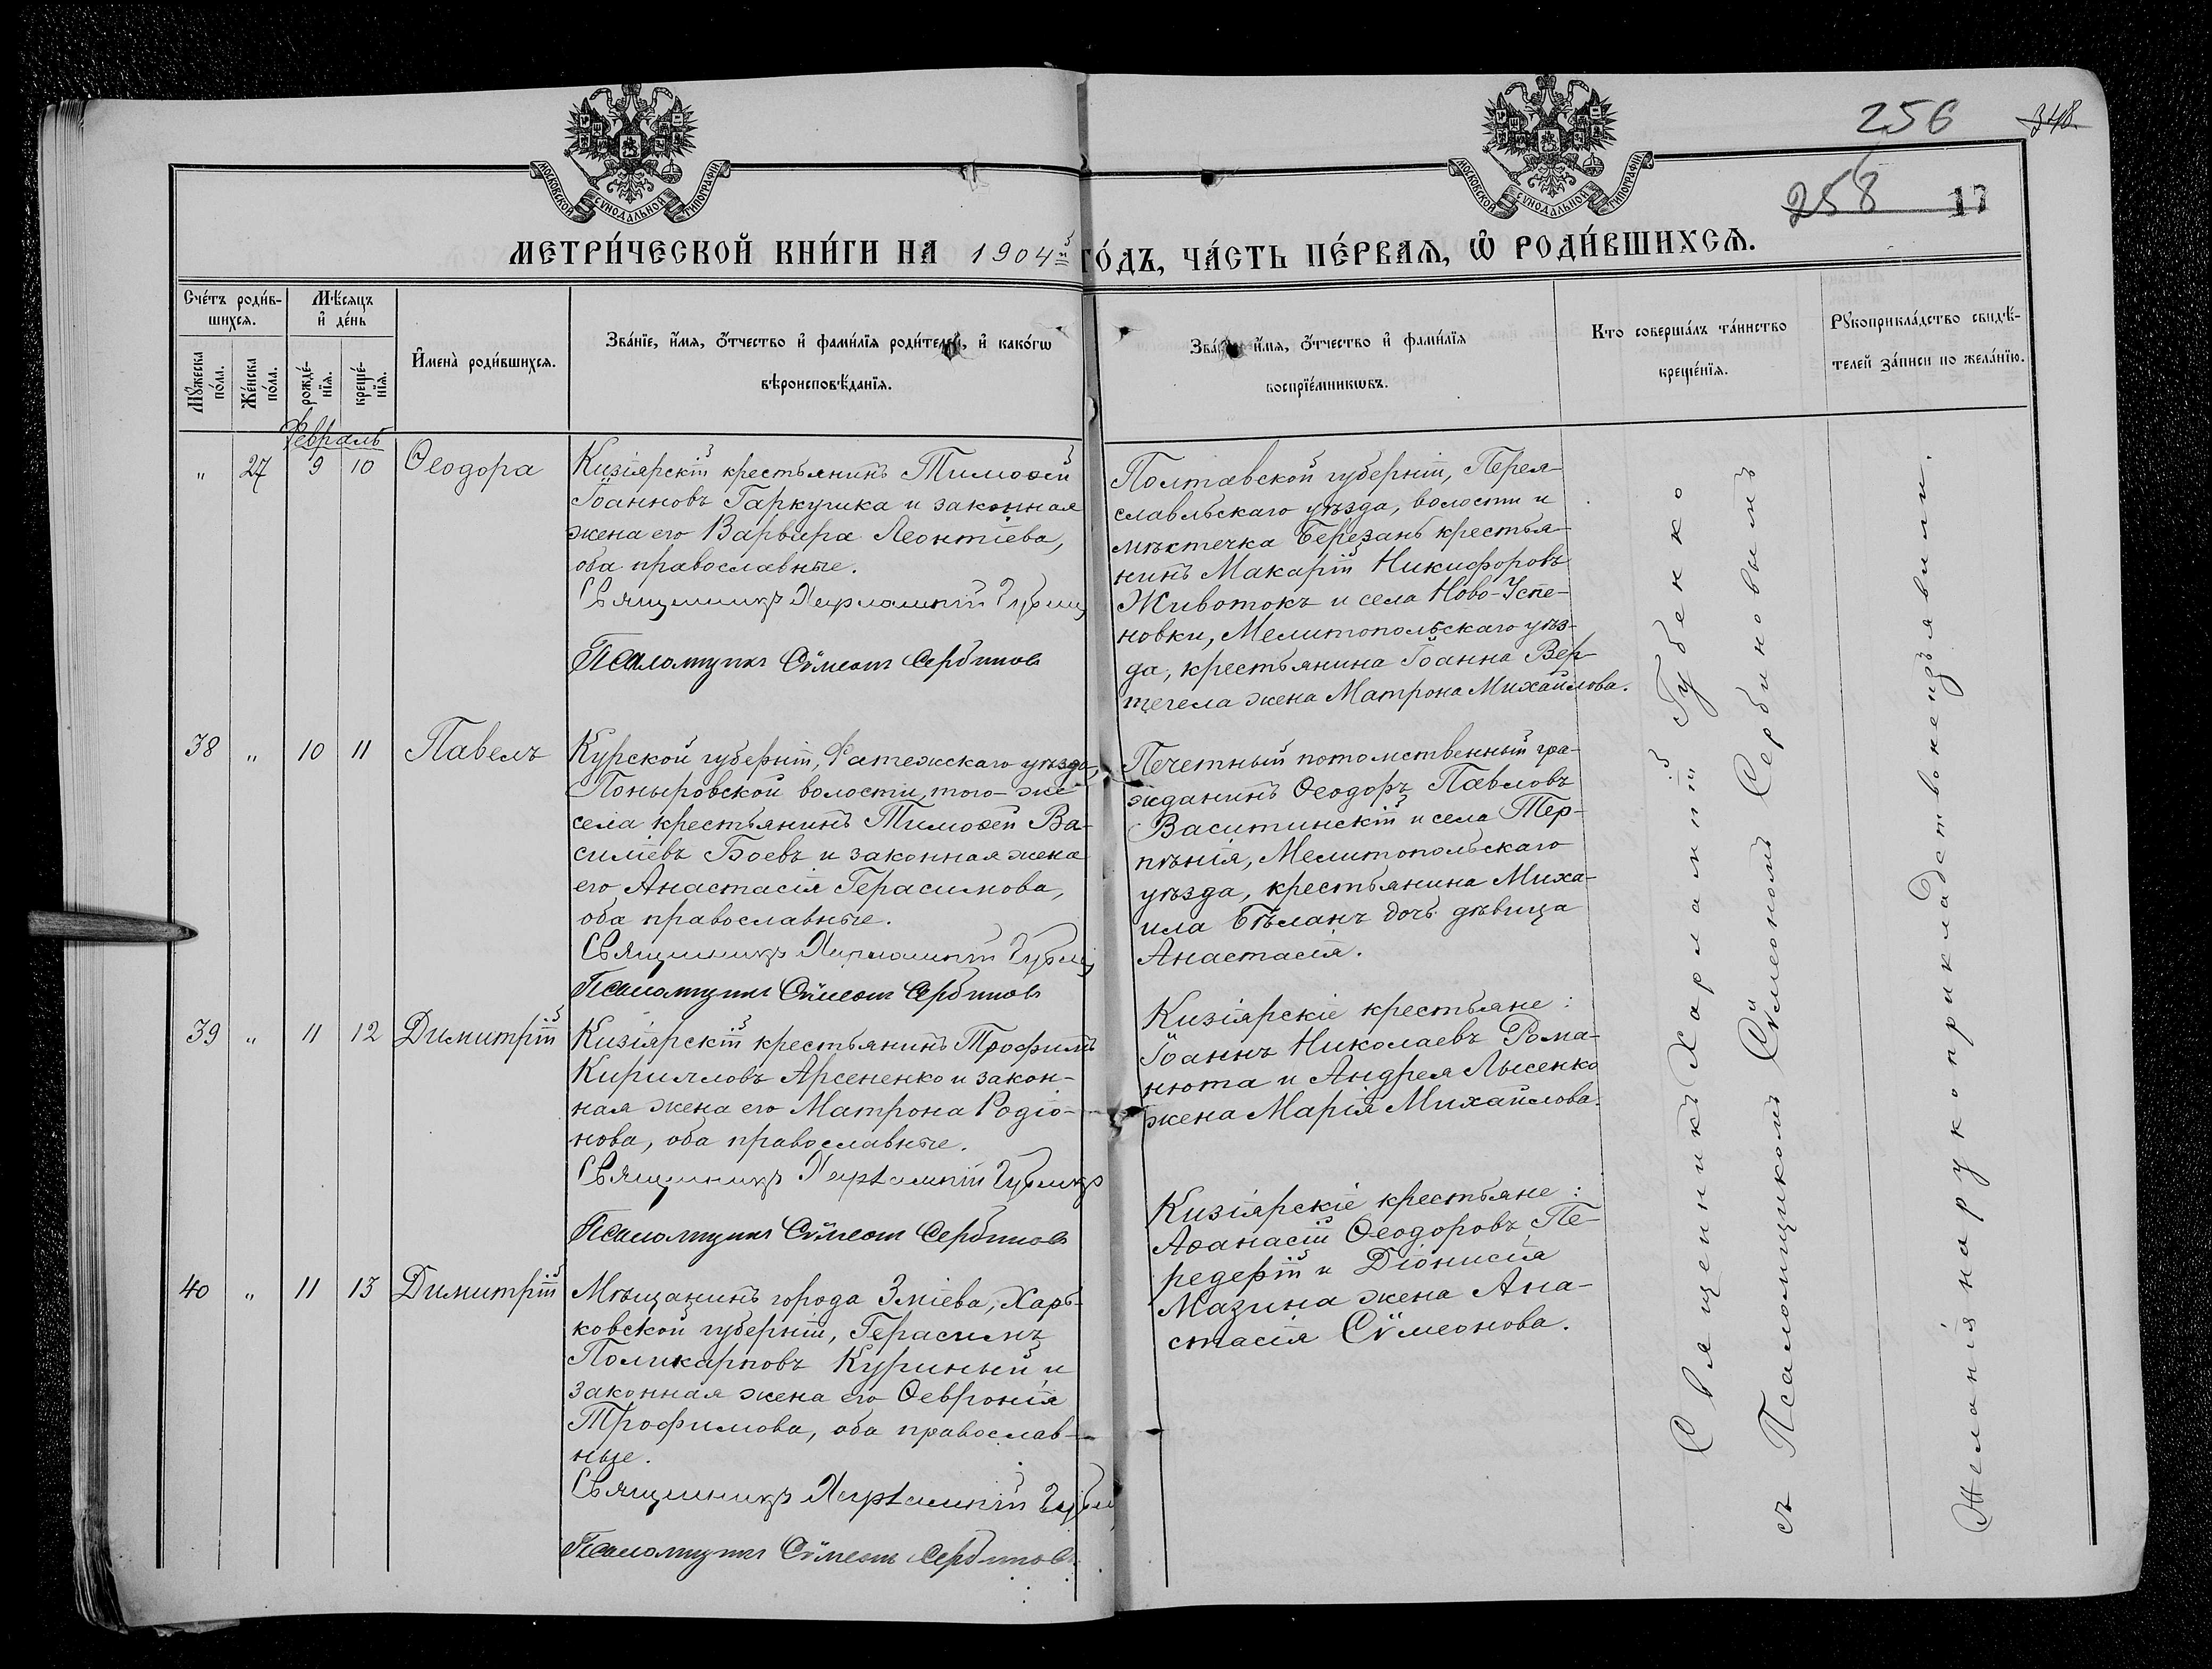 256
348
258 17
МОСКОВСКОЙ СѴНОДАЛЬНОЙ ТИПОГРАФІИ
МОСКОВСКОЙ СѴНОДАЛЬНОЙ ТИПОГРАФІИ
МЕТРИ́ЧЕСКОЙ КНИ́ГИ НА 1904й ГО́ДЪ, ЧА́СТЬ ПЕ́РВАѦ, Ѽ РОДИ́ВШИХСѦ.
Сче́тъ роди́в-
шихсѧ.
Мꙋ́жеска по́ла.
Же́нска по́ла.
Мѣ́сѧцъ
и҆ де́нь
рожде́-
нїѧ.
креще́-
нїѧ.
И҆мена̀ роди́вшихсѧ.
Зва́нїе, и҆́мѧ, ѻ҆́тчество и҆ фами́лїѧ роди́телей, и҆ како́гѡ
вѣроисповѣ́данїѧ.
Зва́нїе, и҆́мѧ, ѻ҆́тчество и҆ фами́лїѧ
воспрїе́мникѡвъ.
Кто соверша́лъ та́инство
креще́нїѧ.
Рꙋкоприкла́дство свидѣ́-
телей за́писи по жела́нїю.
Февраль
" 27 9 10 Ѳеодора
Кизіярскій крестьянинъ Тимоѳей
Іоанновъ Гаркушка и законная
жена его Варвара Леонтіева,
оба православные.
Священникъ Харлампій
Псаломщикъ Сѷмеонъ Сербиновъ
Полтавской губерніи, Перея-
славльскаго уѣзда, волости и
мѣстечка Березань крестья-
нинъ Макарій Никифоровъ
Животокъ и села Ново-Успе-
новки, Мелитопольскаго уѣз-
да, крестьянина Іоанна Вер-
тегела жена Матрона Михайлова.
38 " 10 11 Павелъ
Курской губерніи, Фатежскаго уѣзда,
Поныровской волости, того-же
села крестьянинъ Тимоѳей Ва-
силіевъ Боевъ и законная жена
его Анастасія Герасимова,
оба православные.
Священникъ Харлампій
Псаломщикъ Сѷмеонъ Сербиновъ
Почетный потомственный гра-
жданинъ Ѳеодоръ Павловъ
Васитинскій и села Тер-
пѣнія, Мелитопольскаго
уѣзда, крестьянина Миха-
ила Бѣланъ дочь дѣвица
Анастасія.
39 " 11 12 Димитрій
Кизіярскій крестьянинъ Трофимъ
Кирилловъ Арсененко и закон-
ная жена его Матрона Родіо-
нова, оба православные.
Священникъ Харлампій
Псаломщикъ Сѷмеонъ Сербиновъ
Кизіярскіе крестьяне:
Іоаннъ Николаевъ Рома-
нюта и Андрея Лысенко
жена Марія Михайлова.
40 " 11 13 Димитрій
Мѣщанинъ города Зміева, Харь-
ковской губерніи, Герасимъ
Поликарповъ Куриный и
законная жена его Ѳевронія
Трофимова, оба православ-
ные.
Священникъ Харлампій
Псаломщикъ Сѷмеонъ Сербиновъ
Кизіярскіе крестьяне:
Аѳанасій Ѳеодоровъ Пе-
редерій и Діонисія
Мазина жена Ана-
стасія Сѷмеонова.
Священникъ Харлампій Губенко
съ Псаломщикомъ Сѷмеономъ Сербиновымъ
Желанія на рукоприкладство не изъявили.